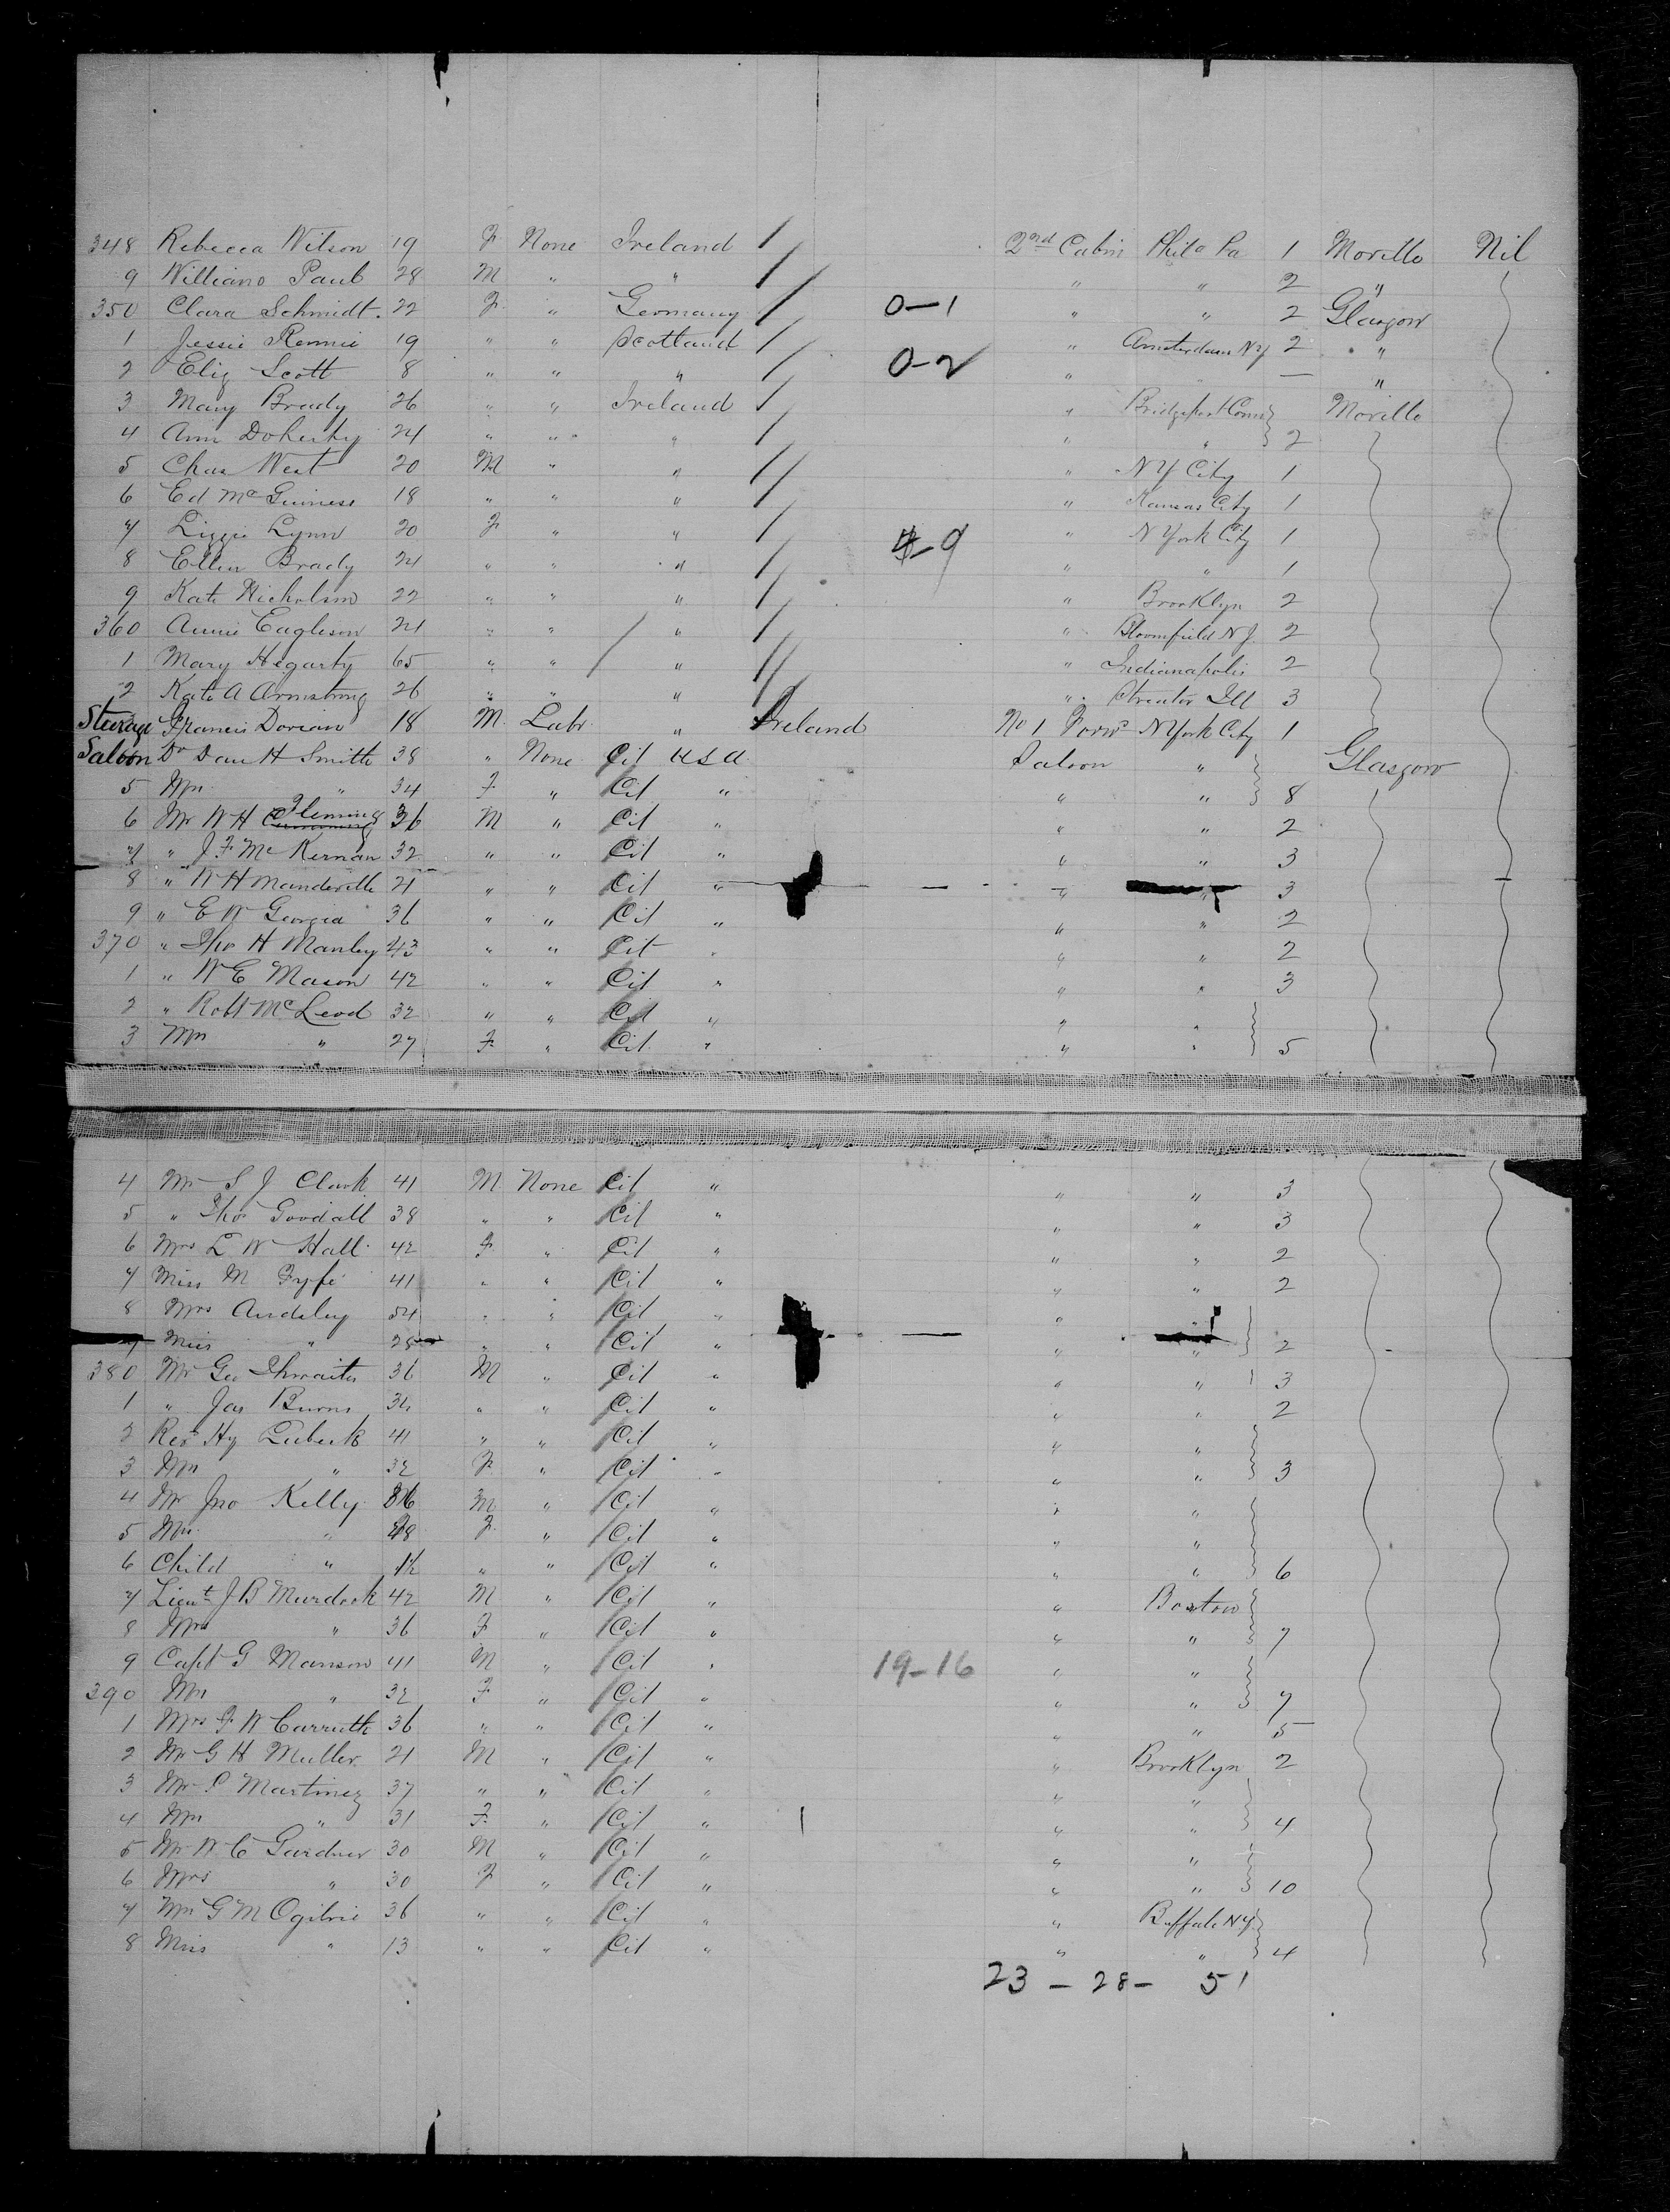 348 Rebecca Wilson 19 F None Ireland / 2nd Cabin Phila Pa 1 Moville Nil
9 William Paul 28 M " " / " " 2 "
350 Clara Schmidt. 22 F " Germany / 0-1 " " 2 Glasgow
1 Jessie Rennie 19 " " Scotland / " Amsterdam NY 2 "
2 Eliz Scott 8 " " " / 0-2 " — "
3 Mary Brady 26 " " Ireland / " Bridgeport Conn Moville
4 Ann Doherty 24 " " " / " " 2
5 Chas West 20 M " " / " N Y City 1
6 Ed McGuiness 18 " " " / " Kansas City 1
7 Lizzie Lynn 20 F " " / " N York City 1
8 Ellen Brady 24 " " " / 4-9 " " 1
9 Kate Nicholson 22 " " " / " Brooklyn 2
360 Annie Eagleson 24 " " / " / " Bloomfield N J. 2
1 Mary Hegarty 65 " " " / " Indianapolis 2
2 Kate A Armstrong 26 " " " / " Streator Ill 3
Steerage Francis Dorian 18 M. Labr. " Ireland No 1 Forwd N York City 1
Saloon Dr Dan H Smith 38 " None Cit U S A. Saloon " Glasgow
5 Mrs " 34 F " Cit " " " 8
6 Mr W H Fleming 36 M " Cit " " " 2
7 " J F McKernan 32 " " Cit " " " 3
8 " W H Mandeville 21 " " Cit " " " 3
9 " E W Georgia 36 " " Cit " " " 2
370 " Tho H Manley 43 " " Cit " " " 2
1 " W E Mason 42 " " Cit " " " 3
2 " Robt McLeod 32 " " Cit " " "
3 Mrs " 27 F " Cit " " " 5
4 Mr S J Clark 41 M None Cit " " " 3
5 " Thos Goodall 38 " " Cit " " " 3
6 Mrs L W Hall 42 F " Cit " " " 2
7 Miss M Fyfe 41 " " Cit " " " 2
8 Mrs Audsley 54 " " Cit " " "
Miss " 28 " " Cit " " " 2
380 Mr Geo Thwaites 36 M " Cit " " " 3
1 " Jas Burns 34 " " Cit " " " 2
2 Rev Hy Lubeck 41 " " Cit " " "
3 Mrs " 32 F " Cit " " " 3
4 Mr Jno Kelly 36 M " Cit " " "
5 Mrs " 28 F " Cit " " "
6 Child " 1½ " " Cit " " " 6
7 Lieut J B Murdock 42 M " Cit " " Boston
8 Mrs " 36 F " Cit " " " 7
9 Capt G Manson 41 M " Cit " 19-16 " "
390 Mrs " 32 F " Cit " " " 7
1 Mrs F W Carruth 36 " " Cit " " " 5
2 Mr G H Muller 21 M " Cit " " Brooklyn 2
3 Mr P Martinez 37 " " Cit " " "
4 Mrs " 31 F " Cit " " " 4
5 Mr W C Gardner 30 M " Cit " " "
6 Mrs " 30 F " Cit " " " 10
7 Mrs G M Ogilvie 36 " " Cit " " Buffalo NY
8 Miss " 13 " " Cit " " " 4
23 — 28 — 51